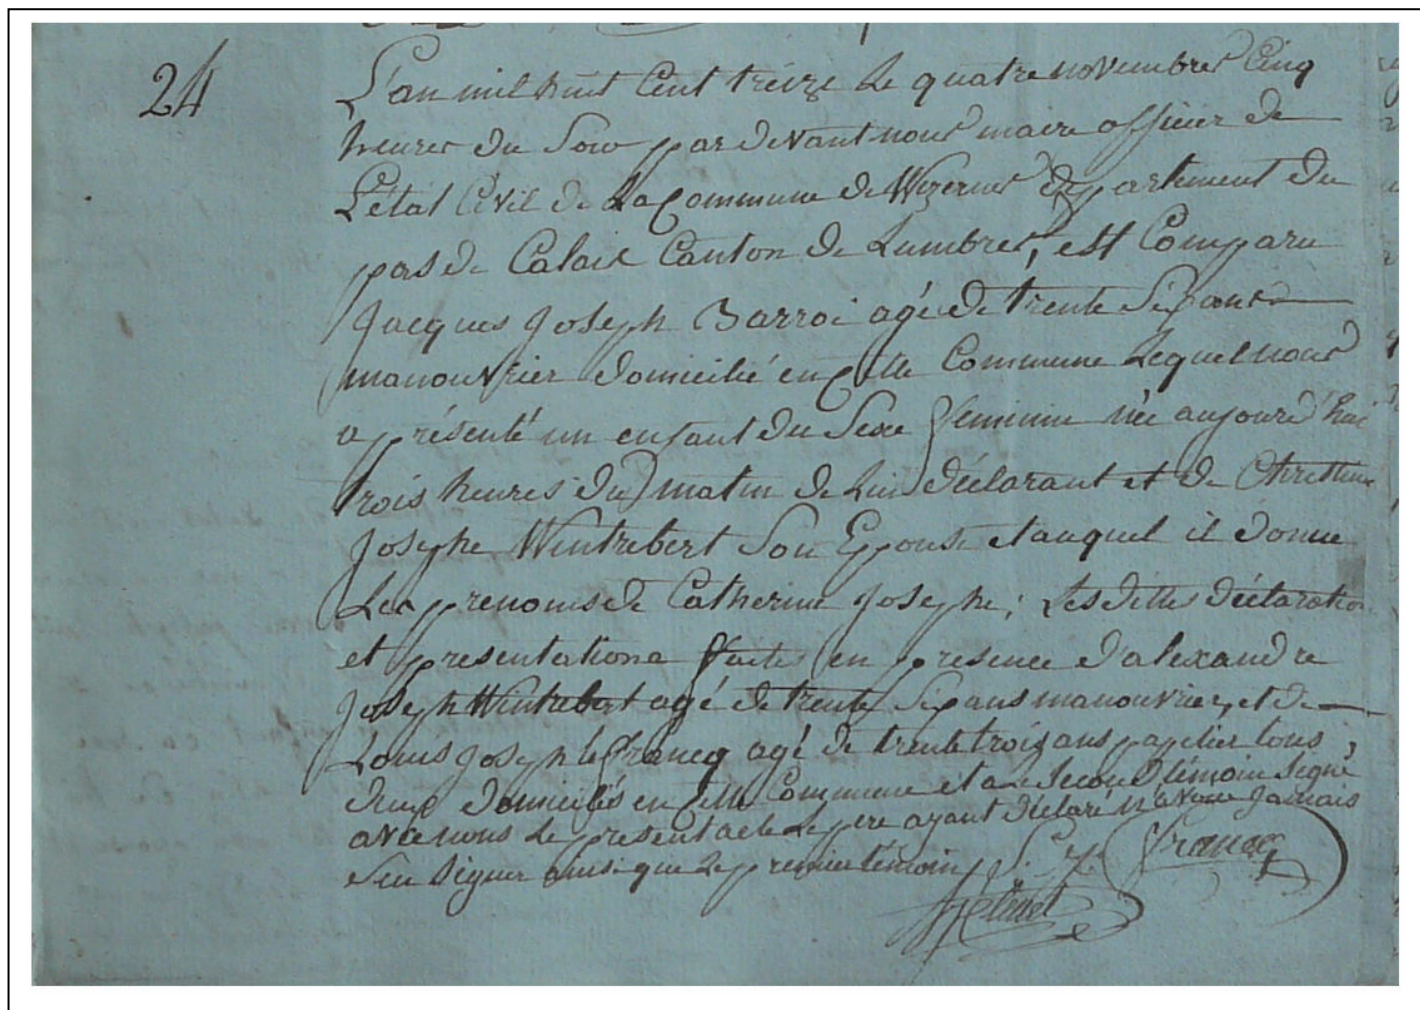 24
L'an mil huit Cent treize Le quatre novembre Cinq
heures du Soir par devant nous maire officier de
L'état Civil de La Commune de Wizernes département du
pas de Calais Canton de Lumbres, est Comparu
Jacques Joseph Barroi agé de trente Six ans
manouvrier domicilié en cette Commune Lequel nous
a présenté un enfant du Sexe feminin née aujourd'hui
trois heures du matin de Lui déclarant et de
Josephe Wintrebert Son Epouse et auquel il donne
Les prenoms de Catherine Josephe; Les dittes déclaration
et presentationa faites en presence d'alexandre
Joseph Wintrebert agé de trente Six ans manouvrier, et de
Louis Joseph le francq agé de trente trois ans papetier tous
deux domiciliés en cette Commune et a Le Second témoin Signé
avec nous Le present acte Le pere ayant déclaré n'avoir Jamais
Seu Signer ainsi que Le premier témoin
L. J. francq